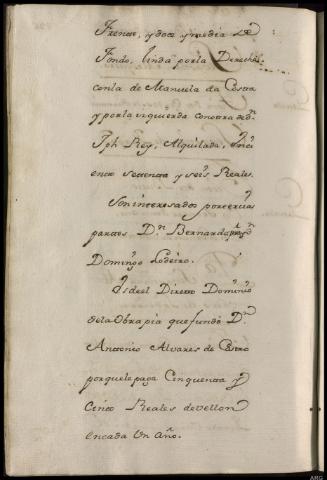 Frente, y doce y media de
Fondo, linda por la Derecha
con la de Manuela da Costa
y por la izquierda con otra de Dn.
Jph Rey, Alquilada, en ci
ento setenta y seis Reales.
Son interesados por tercias
partes Dn. Bernardo
Domingo Lodeiro.
Es de el Directo Dominio
de la Obra pia que fundó Dn.
Antonio Alvares de Castro
por que le paga Cinquenta y
Cinco Reales de vellon
en cada Un Año.
ARG